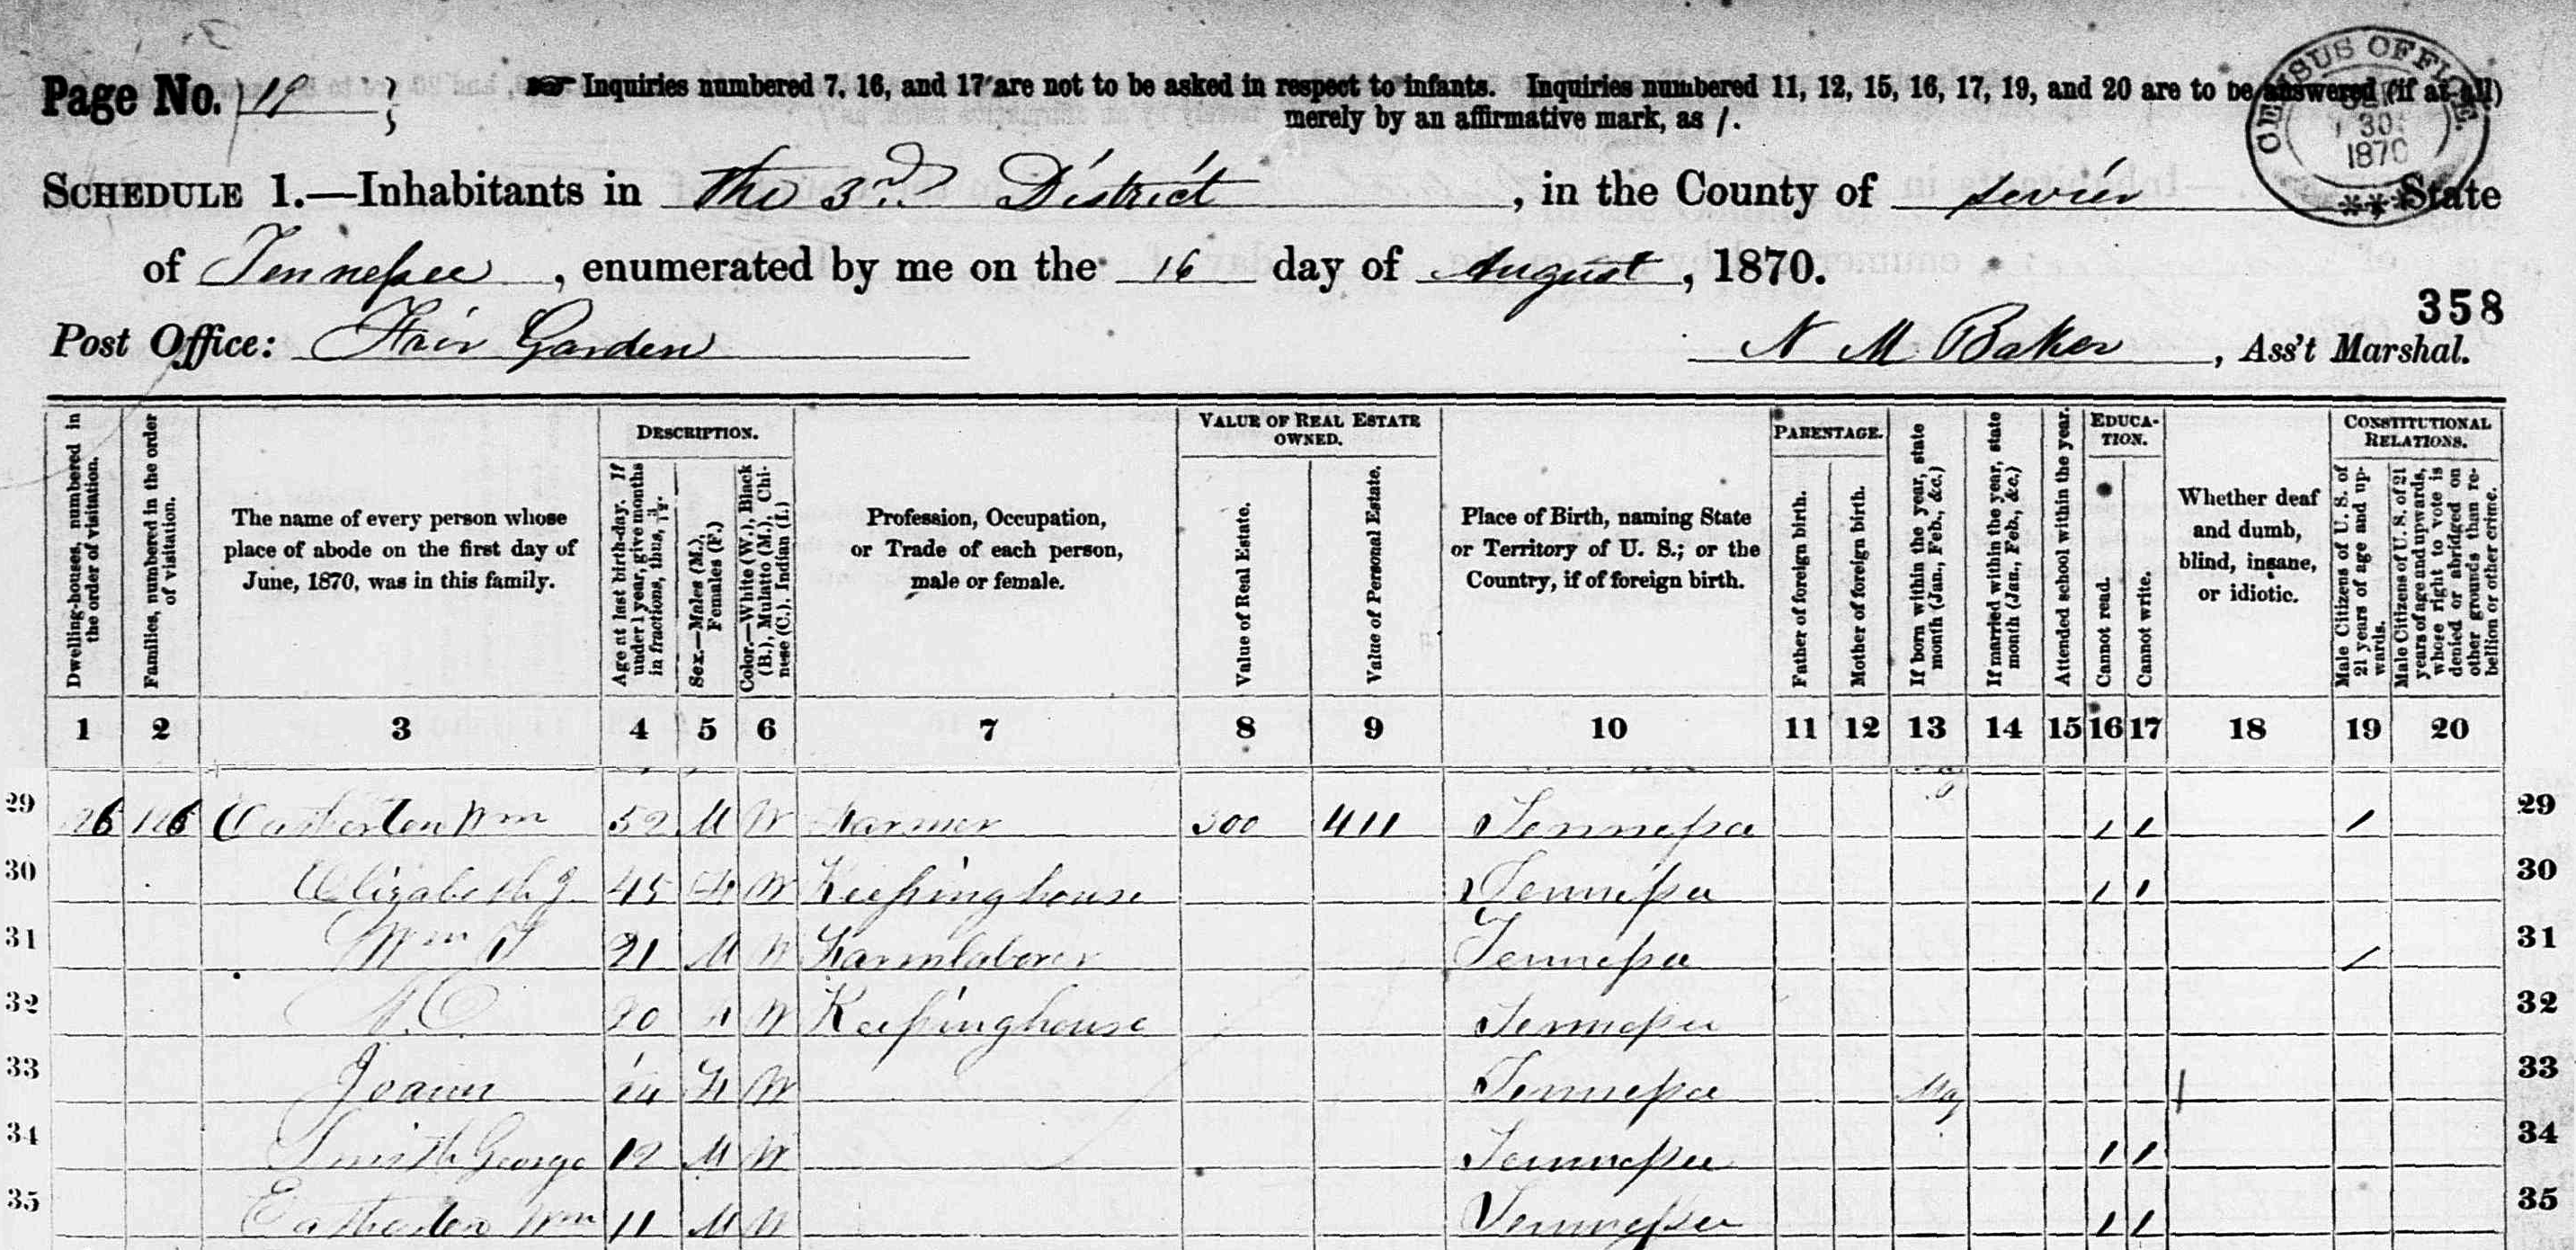 Page No. 19
☞ Inquiries numbered 7, 16, and 17 are not to be asked in respect to infants. Inquiries numbered 11, 12, 15, 16, 17, 19, and 20 are to be answered (if at all)
merely by an affirmative mark, as /.
CENSUS OFFICE.
30
1870
SCHEDULE 1.—Inhabitants in the 3rd District, in the County of Sevier State
of Tennessee, enumerated by me on the 16 day of August, 1870.
358
Post Office: Fair Garden N M Baker, Ass't Marshal.
Dwelling-houses, numbered in the order of visitation.
Families, numbered in the order of visitation.
The name of every person whose
place of abode on the first day of
June, 1870, was in this family.
DESCRIPTION.
Age at last birth-day. If under 1 year, give months in fractions, thus, 3/12.
Sex.—Males (M.), Females (F.)
Color.—White (W.), Black (B.), Mulatto (M.), Chinese (C.), Indian (I.)
Profession, Occupation,
or Trade of each person,
male or female.
VALUE OF REAL ESTATE
OWNED.
Value of Real Estate.
Value of Personal Estate.
Place of Birth, naming State
or Territory of U. S.; or the
Country, if of foreign birth.
PARENTAGE.
Father of foreign birth.
Mother of foreign birth.
If born within the year, state month (Jan., Feb., &c.)
If married within the year, state month (Jan., Feb., &c.)
Attended school within the year.
EDUCA-
TION.
Cannot read.
Cannot write.
Whether deaf
and dumb,
blind, insane,
or idiotic.
CONSTITUTIONAL
RELATIONS.
Male Citizens of U. S. of 21 years of age and upwards.
Male Citizens of U. S. of 21 years of age and upwards, whose right to vote is denied or abridged on other grounds than rebellion or other crime.
1 2 3 4 5 6 7 8 9 10 11 12 13 14 15 16 17 18 19 20
29 126 126 Easterten Wm 52 M W Farmer 300 411 Tennessee / / / 29
30 Elizabeth J 45 F W Keeping house Tennessee / / 30
31 Wm 21 M W Farm laborer Tennessee / 31
32 20 F W Keeping house Tennessee 32
33 Joann F W Tennessee May 33
34 Smith George 12 M W Tennessee / / 34
35 Wm 11 M W Tennessee / / 35